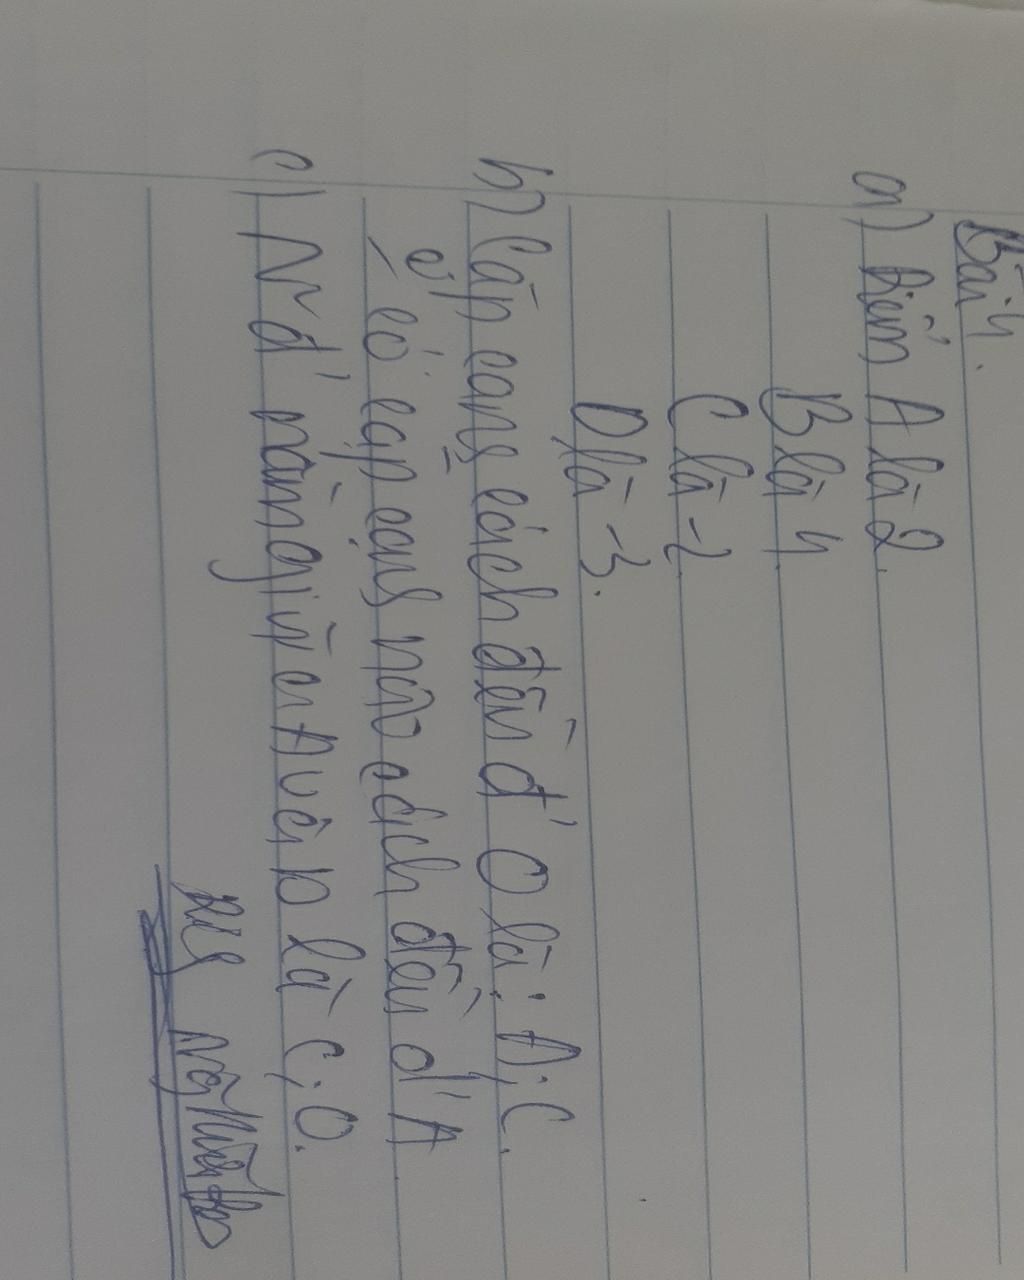 Bài 4.
a) Điểm A là 2.
B là 4
C là -2
D là -3.
b) Cặp cạnh cách đều đ' O là: A; C.
có cặp cạnh nào cách đều đ' A
c) N~ đ' nằm giữa A và D là C; O.